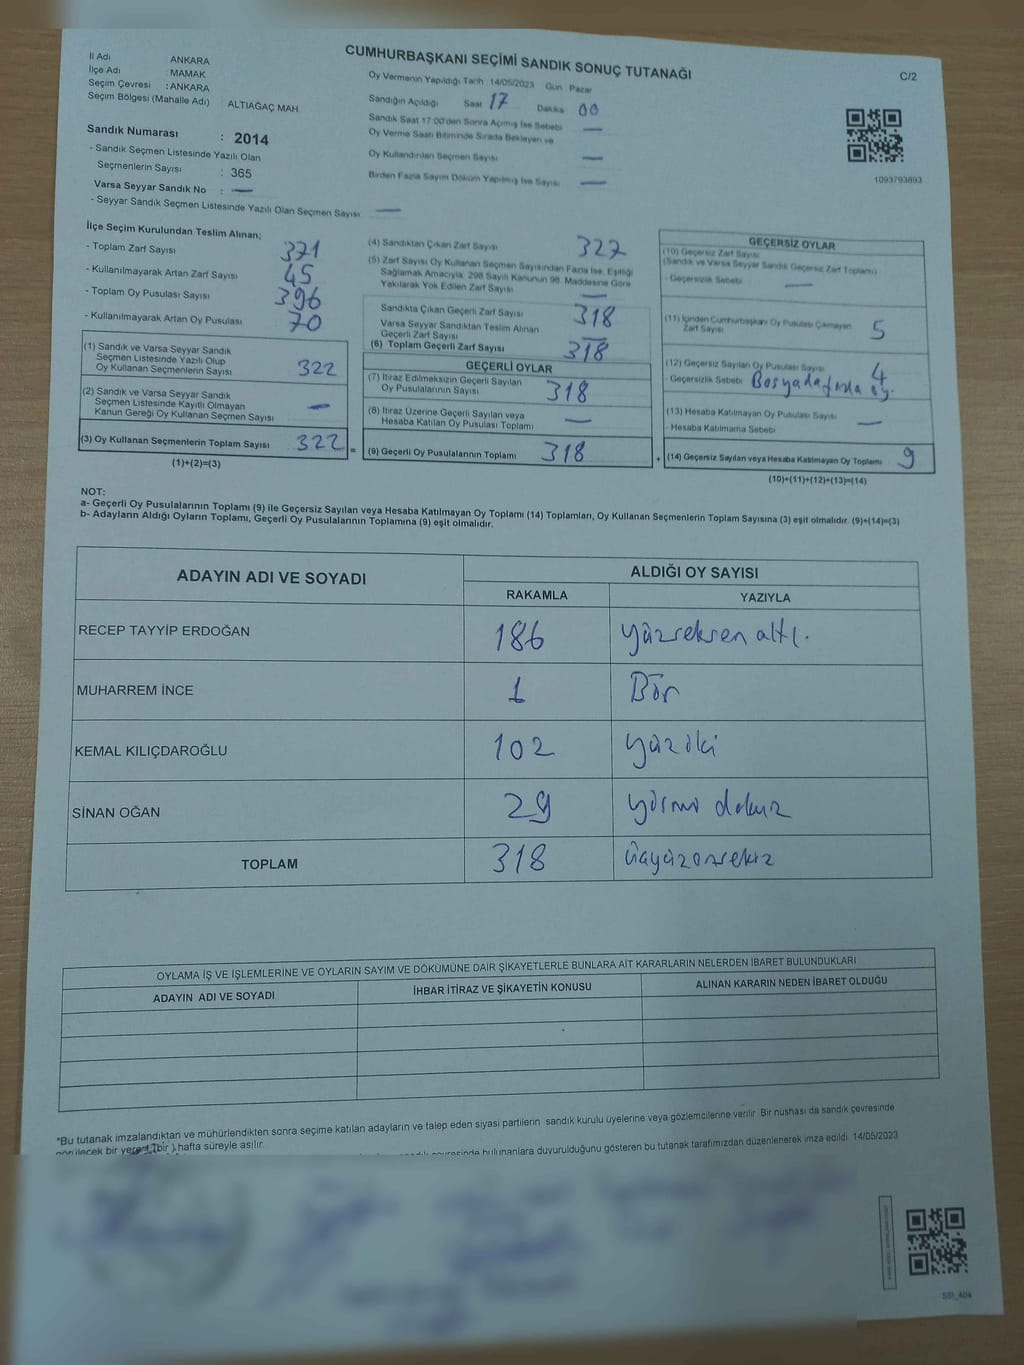 CUMHURBAŞKANI SEÇİMİ SANDIK SONUÇ TUTANAĞI
C/2
İl Adı ANKARA
İlçe Adı : MAMAK
Seçim Çevresi : ANKARA
Seçim Bölgesi (Mahalle Adı) ALTIAĞAÇ MAH
Oy Vermenin Yapıldığı Tarih 14/05/2023 Gün Pazar
Sandığın Açıldığı Saat 17 Dakika 00
Sandık Saat 17:00'den Sonra Açılmış İse Sebebi —
Oy Verme Saati Bitiminde Sırada Bekleyen ve
Oy Kullandırılan Seçmen Sayısı —
Birden Fazla Sayım Döküm Yapılmış İse Sayısı —
1093793893
Sandık Numarası : 2014
- Sandık Seçmen Listesinde Yazılı Olan
Seçmenlerin Sayısı : 365
Varsa Seyyar Sandık No : —
- Seyyar Sandık Seçmen Listesinde Yazılı Olan Seçmen Sayısı —
İlçe Seçim Kurulundan Teslim Alınan;
- Toplam Zarf Sayısı 371
- Kullanılmayarak Artan Zarf Sayısı 45
- Toplam Oy Pusulası Sayısı 396
- Kullanılmayarak Artan Oy Pusulası 70
(1) Sandık ve Varsa Seyyar Sandık
Seçmen Listesinde Yazılı Olup
Oy Kullanan Seçmenlerin Sayısı 322
(2) Sandık ve Varsa Seyyar Sandık
Seçmen Listesinde Kayıtlı Olmayan
Kanun Gereği Oy Kullanan Seçmen Sayısı —
(3) Oy Kullanan Seçmenlerin Toplam Sayısı 322 =
(1)+(2)=(3)
(4) Sandıktan Çıkan Zarf Sayısı 327
(5) Zarf Sayısı Oy Kullanan Seçmen Sayısından Fazla İse, Eşitliği
Sağlamak Amacıyla, 298 Sayılı Kanunun 98. Maddesine Göre
Yakılarak Yok Edilen Zarf Sayısı —
Sandıkta Çıkan Geçerli Zarf Sayısı 318
Varsa Seyyar Sandıktan Teslim Alınan
Geçerli Zarf Sayısı —
(6) Toplam Geçerli Zarf Sayısı 318
GEÇERLİ OYLAR
(7) İtiraz Edilmeksizin Geçerli Sayılan
Oy Pusulalarının Sayısı 318
(8) İtiraz Üzerine Geçerli Sayılan veya
Hesaba Katılan Oy Pusulası Toplamı —
(9) Geçerli Oy Pusulalarının Toplamı 318
GEÇERSİZ OYLAR
(10) Geçersiz Zarf Sayısı
(Sandık ve Varsa Seyyar Sandık Geçersiz Zarf Toplamı)
- Geçersizlik Sebebi —
(11) İçinden Cumhurbaşkanı Oy Pusulası Çıkmayan
Zarf Sayısı 5
(12) Geçersiz Sayılan Oy Pusulası Sayısı 4
- Geçersizlik Sebebi oy.
(13) Hesaba Katılmayan Oy Pusulası Sayısı —
- Hesaba Katılmama Sebebi
+ (14) Geçersiz Sayılan veya Hesaba Katılmayan Oy Toplamı 9
(10)+(11)+(12)+(13)=(14)
NOT:
a- Geçerli Oy Pusulalarının Toplamı (9) ile Geçersiz Sayılan veya Hesaba Katılmayan Oy Toplamı (14) Toplamları, Oy Kullanan Seçmenlerin Toplam Sayısına (3) eşit olmalıdır. (9)+(14)=(3)
b- Adayların Aldığı Oyların Toplamı, Geçerli Oy Pusulalarının Toplamına (9) eşit olmalıdır.
ADAYIN ADI VE SOYADI ALDIĞI OY SAYISI
RAKAMLA YAZIYLA
RECEP TAYYİP ERDOĞAN 186 yüzseksen altı.
MUHARREM İNCE 1 Bir
KEMAL KILIÇDAROĞLU 102 yüz iki
SİNAN OĞAN 29 yirmi dokuz
TOPLAM 318 üçyüzonsekiz
OYLAMA İŞ VE İŞLEMLERİNE VE OYLARIN SAYIM VE DÖKÜMÜNE DAİR ŞİKAYETLERLE BUNLARA AİT KARARLARIN NELERDEN İBARET BULUNDUKLARI
ADAYIN ADI VE SOYADI İHBAR İTİRAZ VE ŞİKAYETİN KONUSU ALINAN KARARIN NEDEN İBARET OLDUĞU
*Bu tutanak imzalandıktan ve mühürlendikten sonra seçime katılan adayların ve talep eden siyasi partilerin sandık kurulu üyelerine veya gözlemcilerine verilir. Bir nüshası da sandık çevresinde
görülecek bir yere 1 (bir ) hafta süreyle asılır.
bulunanlara duyurulduğunu gösteren bu tutanak tarafımızdan düzenlenerek imza edildi. 14/05/2023